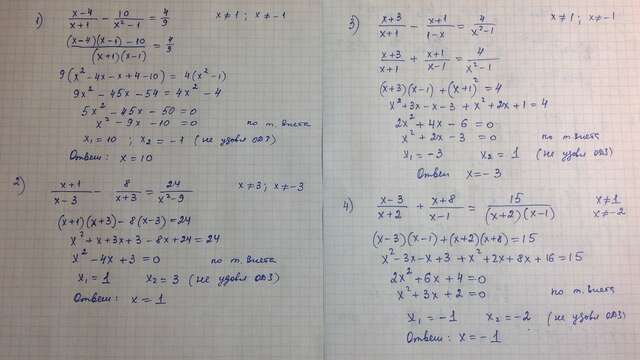 1) (x-4)/(x+1) - 10/(x²-1) = 4/9   x≠1 ; x≠-1
((x-4)(x-1)-10)/((x+1)(x-1)) = 4/9
9(x²-4x-x+4-10) = 4(x²-1)
9x²-45x-54=4x²-4
5x²-45x-50=0
x²-9x-10=0   по т. Виета
x₁=10 ; x₂=-1 (не удовл ОДЗ)
Ответ: x=10
2) (x+1)/(x-3) - 8/(x+3) = 24/(x²-9)   x≠3 ; x≠-3
(x+1)(x+3)-8(x-3)=24
x²+x+3x+3-8x+24=24
x²-4x+3=0   по т. Виета
x₁=1   x₂=3 (не удовл ОДЗ)
Ответ: x=1
3) (x+3)/(x+1) - (x+1)/(1-x) = 4/(x²-1)   x≠1 ; x≠-1
(x+3)/(x+1) + (x+1)/(x-1) = 4/(x²-1)
(x+3)(x-1)+(x+1)²=4
x²+3x-x-3+x²+2x+1=4
2x²+4x-6=0
x²+2x-3=0   по т. Виета
x₁=-3   x₂=1 (не удовл ОДЗ)
Ответ x=-3
4) (x-3)/(x+2) + (x+8)/(x-1) = 15/((x+2)(x-1))   x≠1
x≠-2
(x-3)(x-1)+(x+2)(x+8)=15
x²-3x-x+3+x²+2x+8x+16=15
2x²+6x+4=0
x²+3x+2=0   по т. Виета
x₁=-1   x₂=-2 (не удовл ОДЗ)
Ответ: x=-1